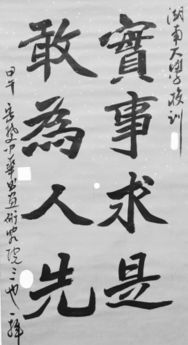 湖南大學校訓
實事求是
敢為人先
甲午
中華書畫術院